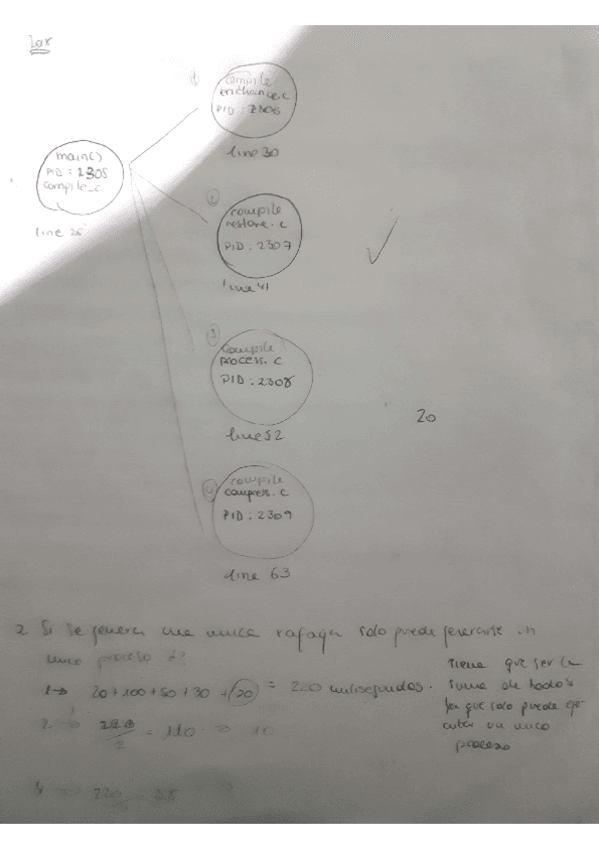 1
compile
enchance.c
PID : 2306
line 30
main()
PID : 2305
compile_c
line 26
2
compile
restore.c
PID : 2307
line 41
3
compile
process.c
PID : 2308
line 52
20
4
compile
compres.c
PID : 2309
line 63
2 Si se genera una unica rafaga solo puede generarse un
unico proceso
1 → 20 + 100 + 50 + 30 + 20 = 220 milisegundos.
Tiene que ser la
suma de todos
ya que solo puede eje
cutar un unico
proceso
2 → 220/2 = 110 ⇒ 110
4 ⇒ 220